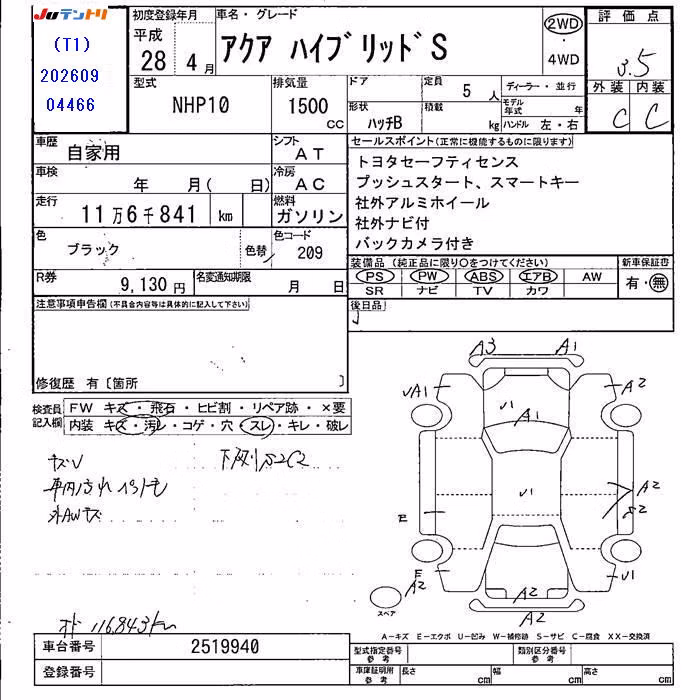 JUテントリ
(T1)
202609
04466
初度登録年月
平成
28年 4月
車名・グレード
アクア ハイブリッドS
2WD
・
4WD
評価点
3.5
外装 内装
C C
型式
NHP10
排気量
1500
CC
ドア
形状
ハッチB
定員
5人
積載
kg
ディーラー・並行
モデル年式 年
ハンドル 左・右
車歴
自家用
シフト
AT
車検
年 月( 日)
冷房
AC
走行
11万6千841 km
燃料
ガソリン
色
ブラック
色替
色コード
209
R券
9,130円
名変通知期限
月 日
セールスポイント(正常に機能するものに限ります)
トヨタセーフティセンス
プッシュスタート、スマートキー
社外アルミホイール
社外ナビ付
バックカメラ付き
装備品(純正品に限り○をつけてください)
PS PW ABS エアB AW
SR ナビ TV カワ
新車保証書
有・無
後日品
注意事項申告欄(不具合内容等は具体的に記入して下さい)
修復歴 有〔箇所 〕
検査員記入欄
FW キズ・飛石・ヒビ割・リペア跡・×要
内装 キズ・汚レ・コゲ・穴・スレ・キレ・破レ
キズU
下廻りS2C2
外AWキズ
オド 116.843km
A3 A1
UA1 A2
U1
A1
U1
A2
S2
E
E
A2
U1
A2
A2
スペア
A-キズ E-エクボ U-凹み W-補修跡 S-サビ C-腐食 XX-交換済
車台番号 2519940
登録番号
型式指定番号 参考
類別区分番号 参考
車庫証明用 参考
長さ cm
幅 cm
高さ cm